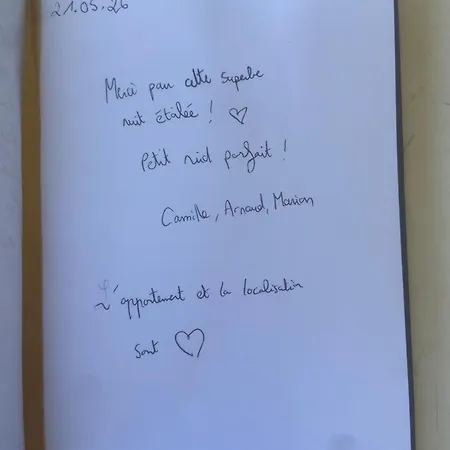 21.05.26
Merci pour cette superbe
nuit étoilée ! ♡
Petit nid parfait !
Camille, Arnaud, Marion
L'appartement et la localisation
sont ♡